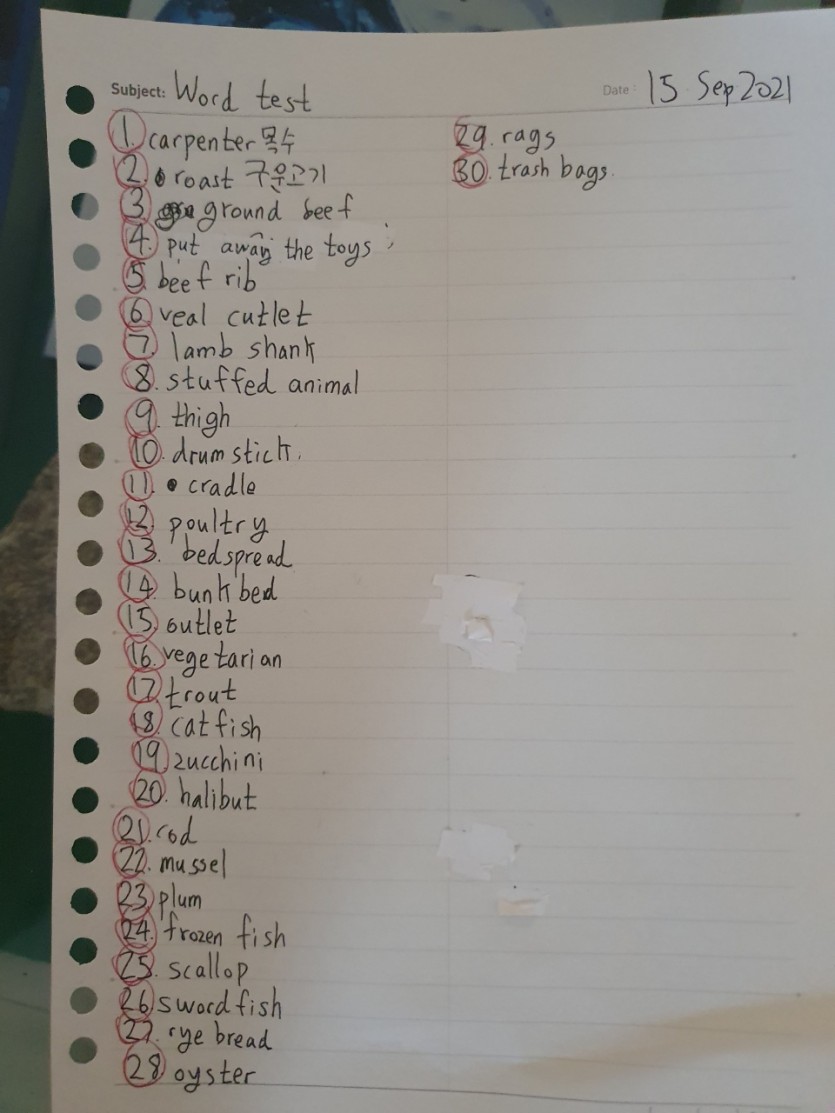 Subject: Word test
Date: 15 Sep 2021
1. carpenter 목수
2. roast 구운고기
3. ground beef
4. put away the toys
5. beef rib
6. veal cutlet
7. lamb shank
8. stuffed animal
9. thigh
10. drum stick.
11. cradle
12. poultry
13. bedspread
14. bunk bed
15. outlet
16. vegetarian
17. trout
18. cat fish
19. zucchini
20. halibut
21. cod
22. mussel
23. plum
24. frozen fish
25. scallop
26. sword fish
27. rye bread
28. oyster
29. rags
30. trash bags.